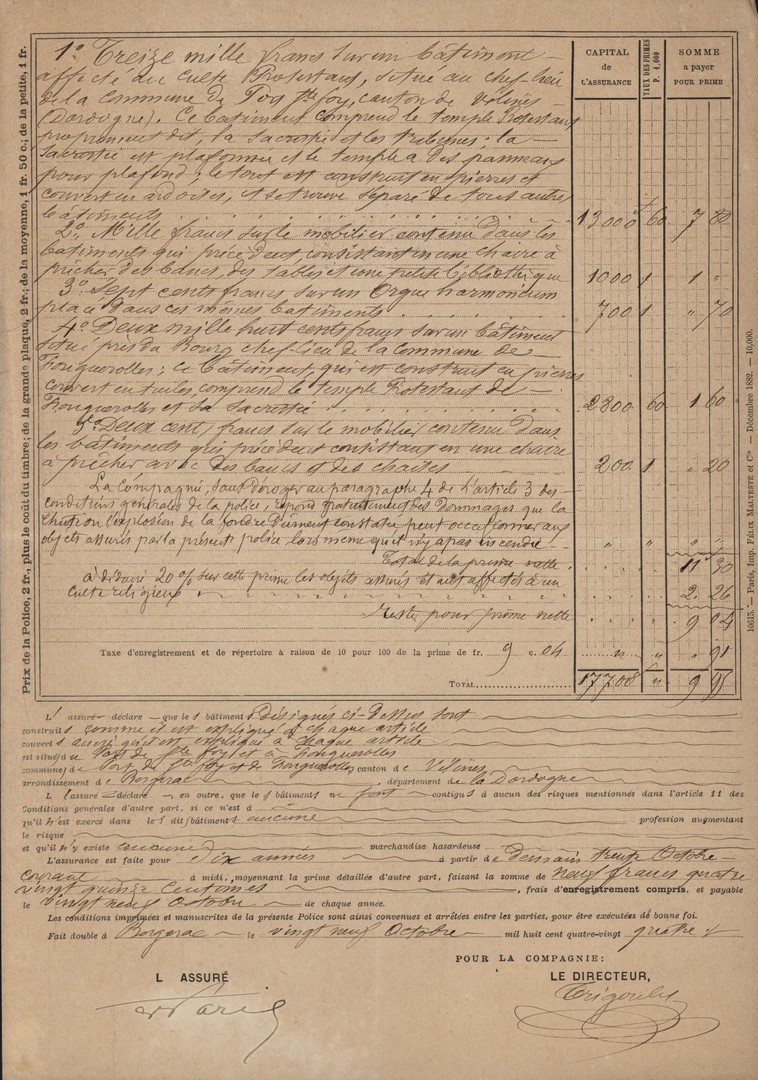 Prix de la Police, 2 fr., plus le coût du timbre; de la grande plaque, 2 fr.; de la moyenne, 1 fr. 50 c.; de la petite, 1 fr.
CAPITAL de L'ASSURANCE
TAUX DES PRIMES P. 1,000
SOMME a payer POUR PRIME
1° Treize mille francs sur un bâtiment
affecté au culte Protestant, situé au chef-lieu
de la commune de Port Ste Foy, canton de Vélines
(Dordogne). Ce bâtiment comprend le temple Protestant
proprement dit, la sacristie et les tribunes; la
sacristie est plafonnée et le temple a des panneaux
pour plafond; le tout est construit en pierres et
couvert en ardoises, et se trouve séparé de tous autres
bâtiments 13000 60 7 80
2° Mille francs sur le mobilier contenu dans les
bâtiments qui précèdent consistant en une chaire à
prêcher des bancs, des tables et une petite bibliothèque 1000 1 1 "
3° Sept cents francs sur un Orgue harmonium
placé dans ces mêmes bâtiments 700 1 " 70
4° Deux mille huit cents francs sur un bâtiment
situé près du Bourg chef-lieu de la commune de
Fougueyrolles; ce bâtiment, qui est construit en pierres
couvert en tuiles, comprend le temple Protestant de
Fougueyrolles et sa sacristie 2800 60 1 60
5° Deux cents francs sur le mobilier contenu dans
les bâtiments qui précèdent consistant en une chaire
à prêcher avec des bancs et des chaises 200 1 " 20
La Compagnie, sans déroger au paragraphe 4 de l'article 3 des
conditions générales de la police, répond gratuitement des dommages que la
chute ou l'explosion de la foudre dûment constatée peut occasionner aux
objets assurés par la présente police lors même qu'il n'y a pas incendie " " " "
Total de la prime nette 11 30
à déduire 20 % sur cette prime les objets assurés étant affectés à un
culte religieux 2 26
Reste pour prime nette 9 04
Taxe d'enregistrement et de répertoire à raison de 10 pour 100 de la prime de fr. 9 c. 04 " " " 91
TOTAL 17700 " 9 95
10615. — Paris, Imp. FÉLIX MALTESTE et Cie — Décembre 1882. — 10,000.
L'assuré déclare que les bâtiments désignés ci-dessus sont
construits comme il est expliqué à chaque article
couverts aussi qu'il est expliqué à chaque article
est situé/de Port de Ste Foy et à Fougueyrolles
commune/de Port de Ste Foy et de Fougueyrolles canton de Vélines
arrondissement de Bergerac, département de la Dordogne
L'assuré déclare en outre, que les bâtiments ne sont contigus à aucun des risques mentionnés dans l'article 11 des
Conditions générales d'autre part, si ce n'est à
qu'il n'est exercé dans les dit/bâtiments aucune profession augmentant
le risque
et qu'il n'y existe aucune marchandise hasardeuse
L'assurance est faite pour dix années à partir de demain trente Octobre
courant à midi, moyennant la prime détaillée d'autre part, faisant la somme de neuf francs quatre
vingt quinze centimes, frais d'enregistrement compris, et payable
le vingt neuf octobre de chaque année.
Les conditions imprimées et manuscrites de la présente Police sont ainsi convenues et arrêtées entre les parties, pour être exécutées de bonne foi.
Fait double à Bergerac le vingt neuf Octobre mil huit cent quatre-vingt quatre
POUR LA COMPAGNIE:
L ASSURÉ
LE DIRECTEUR,